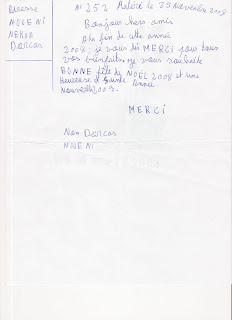 Adresse
NGUENI
NEKUN
DORCAS
N° 252 Maleré le 23 Novembre 2008
Bonjour chers amis
A la fin de cette année
2008, je vous dis MERCI pour tous
vos bienfaits, je vous souhaite
BONNE fête de NOËL 2008 et une
Heureuse et Sainte Année
Nouvelle 2009.
MERCI
Nom Dorcas
NGUENI